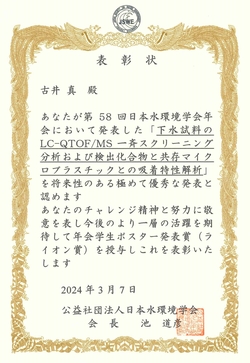 JSWE
表彰状
古井 真 殿
あなたが第58回日本水環境学会年
会において発表した「下水試料の
LC-QTOF/MS一斉スクリーニング
分析および検出化合物と共存マイク
ロプラスチックとの吸着特性解析」
を将来性のある極めて優秀な発表と
認めます
あなたのチャレンジ精神と努力に敬
意を表し今後のより一層の活躍を期
待して年会学生ポスター発表賞（ラ
イオン賞）を授与しこれを表彰いた
します
2024年3月7日
公益社団法人日本水環境学会
会長 池 道彦